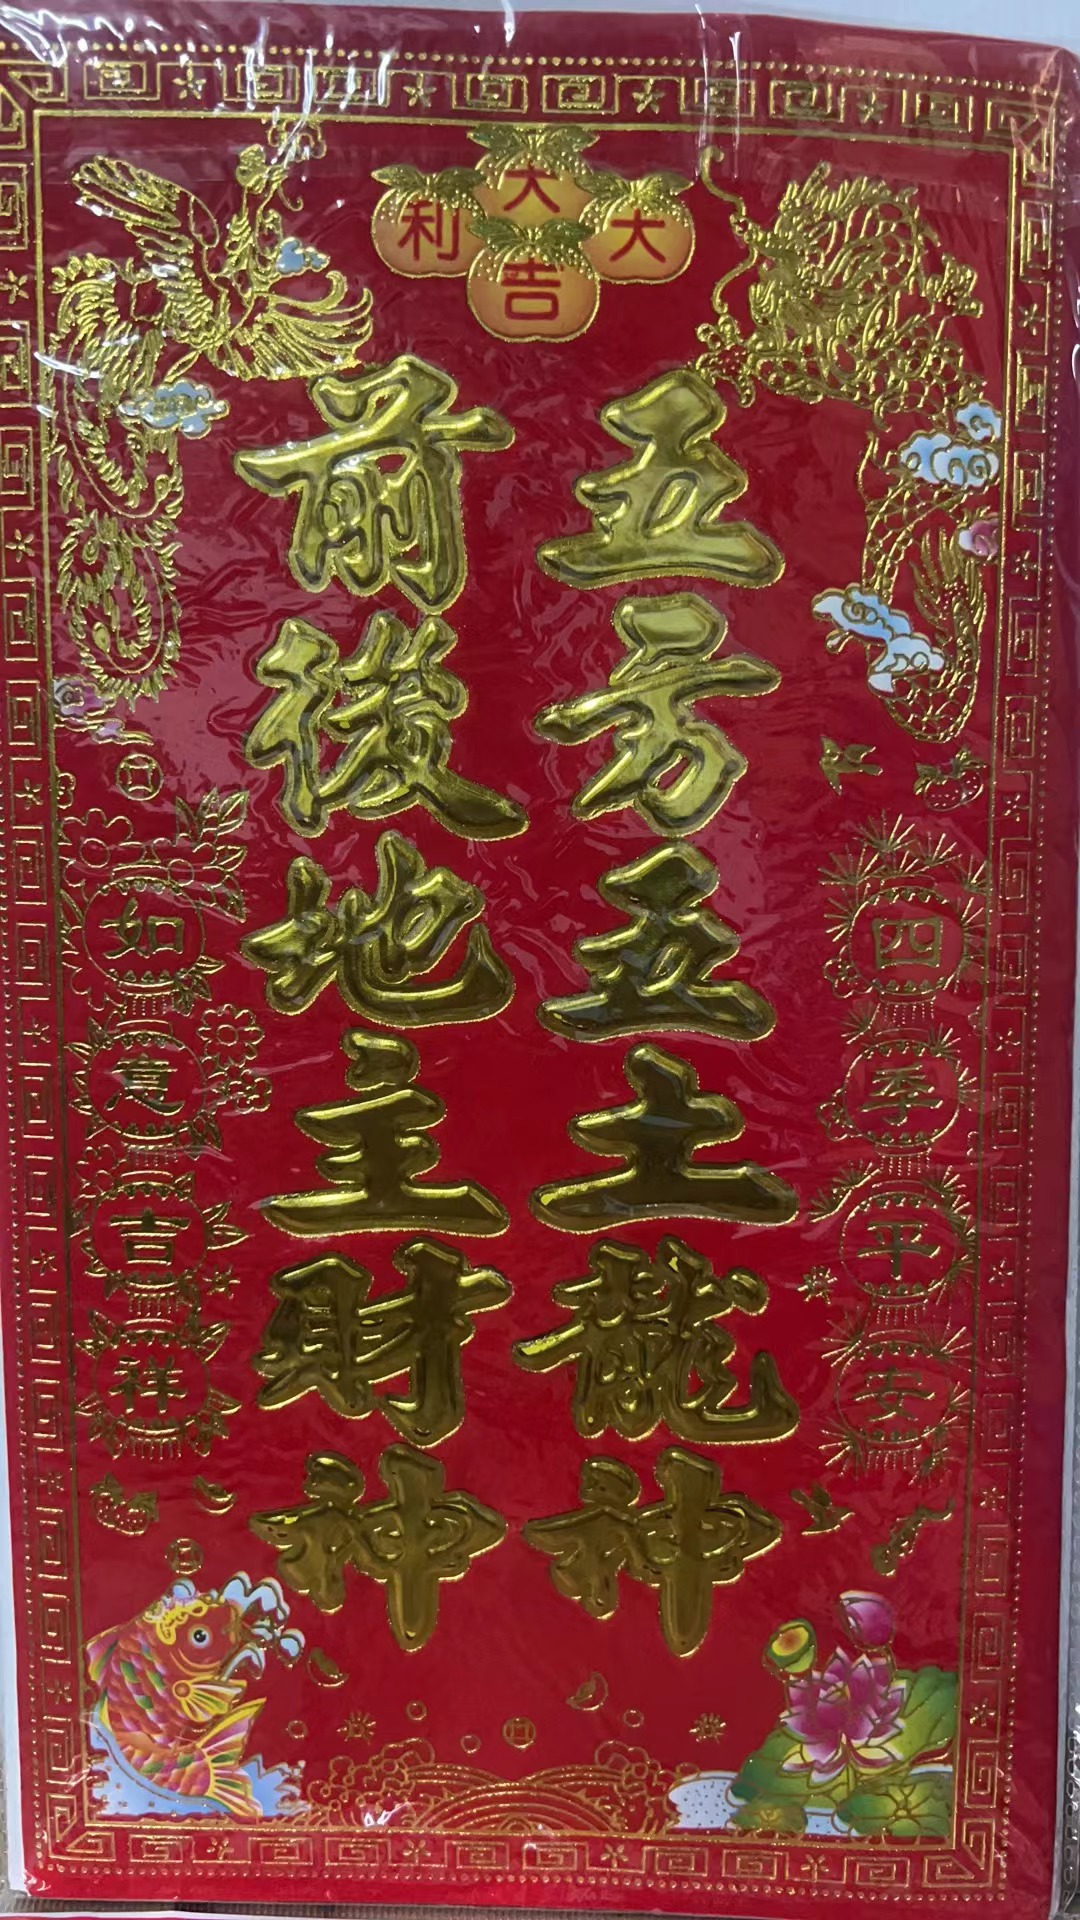 大吉大利
四季平安
五方五土龍神
前後地主財神
如意吉祥